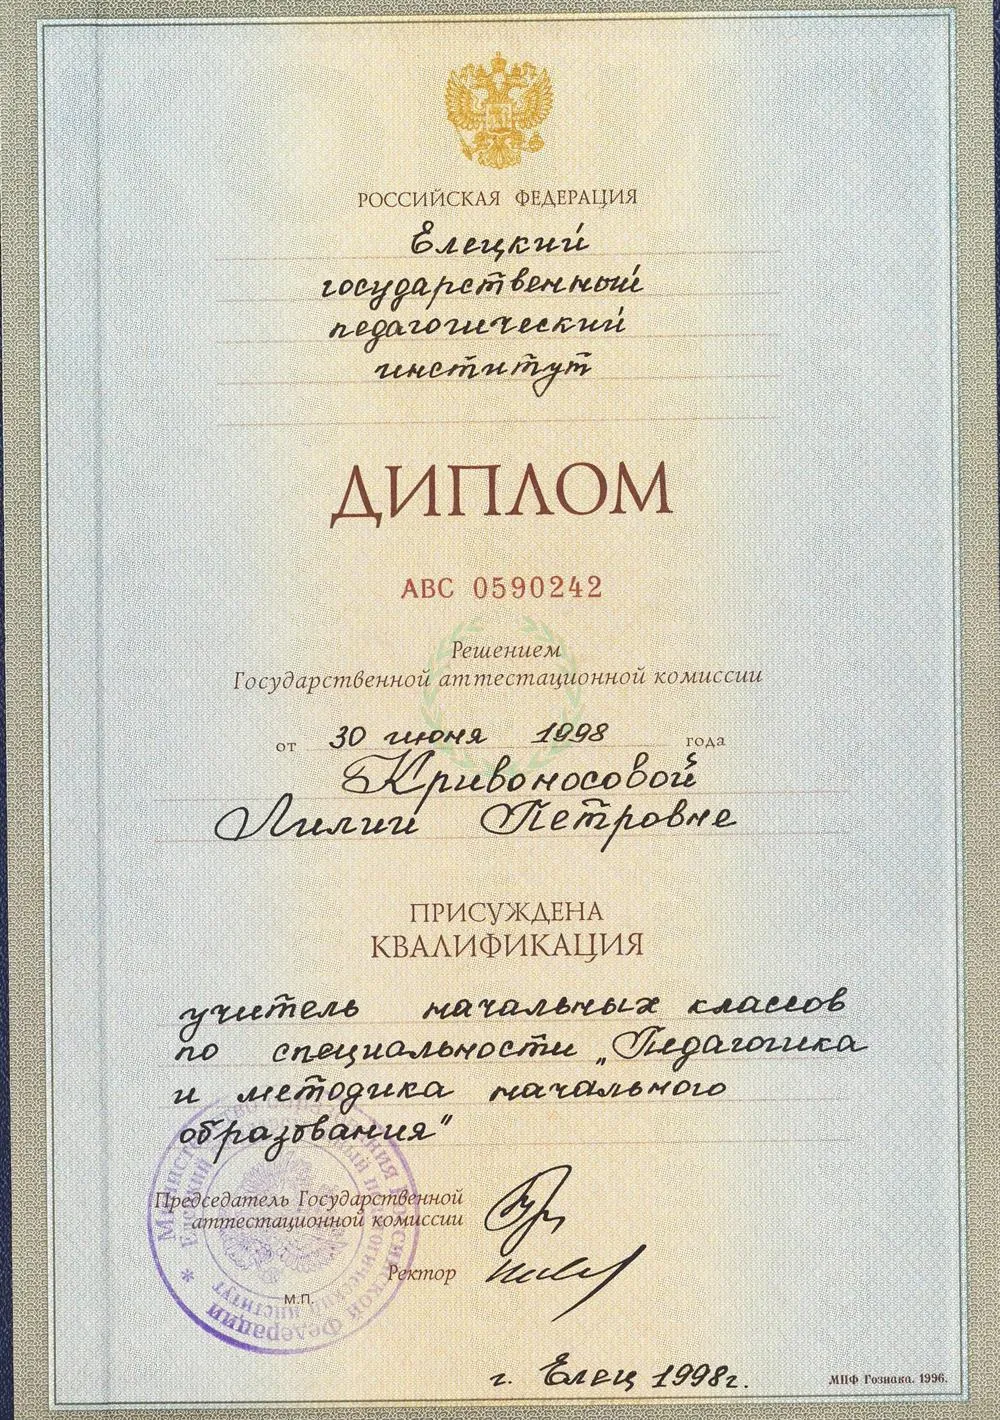 РОССИЙСКАЯ ФЕДЕРАЦИЯ
Елецкий
государственный
педагогический
институт
ДИПЛОМ
АВС 0590242
Решением
Государственной аттестационной комиссии
от 30 июня 1998 года
Кривоносовой
Лилии Петровне
ПРИСУЖДЕНА
КВАЛИФИКАЦИЯ
учитель начальных классов
по специальности „Педагогика
и методика начального
образования"
Председатель Государственной
аттестационной комиссии
Ректор
М.П.
г. Елец 1998г.
МПФ Гознака. 1996.